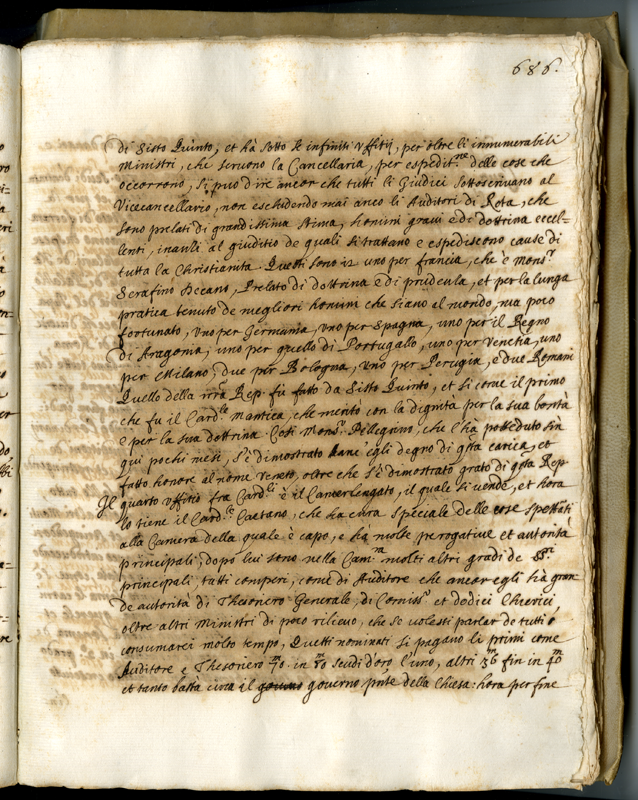 686.
di Sisto Quinto, et hà sotto se infiniti vffitij, per oltre li innumerabili
Ministri, che seruono la Cancellaria, per espedit.ne delle cose che
occorrono, si può dire ancor che tutti li Giudici sottoscriuano al
Vicecancellario, non escludendo mai anco li Auditori di Rota, che
sono prelati di grandissima stima, homini graui e di dottrina eccel-
lenti, inanzi al giuditio de quali si trattano e espediscono cause di
tutta la Christianita. Questi sono 12 uno per francia, che è mons.r
Serafino Decano, Prelato di dottrina e di prudentia, et per la lunga
pratica tenuto de megliori homini che siano al mondo, ma poco
fortunato, vno per Germania, vno per Spagna, uno per il Regno
di Aragonia, uno per quello di Portugallo, uno per Venetia, uno
per Milano, due per Bologna, vno per Perugia, e due Romani
Quello della nrã Rep. fù fatto da Sisto Quinto, et si come il primo
che fu il Card.le Mantica, che meritò con la dignità per la sua bontà
e per la sua dottrina Così Mons.r Pellegrino, che l'ha posseduto sin
qui pochi mesi, s'è dimostrato egli degno di qsta carica, et
fatto honore al nome Veneto, oltre che s'è dimostrato grato di qsta Rep.
Il quarto vffitio fra Card.li è il Camerlengato, il quale si vende, et hora
lo tiene il Card.le Caetano, che ha cura speciale delle cose spettati
alla Camera della quale è capo, e hà molte perogatiue et autorità
principali, dopo lui sono nella Cam.ra molti altri gradi de SS.ri
principali, tutti comperi, come di Auditore che ancor egli hà gran
de autorità di Thesoriero Generale, di Comiss.o et dodici Chierici,
oltre altri Ministri di poco rilieuo, che se volessi parlar de tutti
consumarei molto tempo, Questi nominati si pagano li primi come
Auditore e Thesoriero 70 in 80 scudi d'oro l'uno, altri 36 fin in 40
et tanto basta circa il gouerno pnte della Chiesa: hora per fine